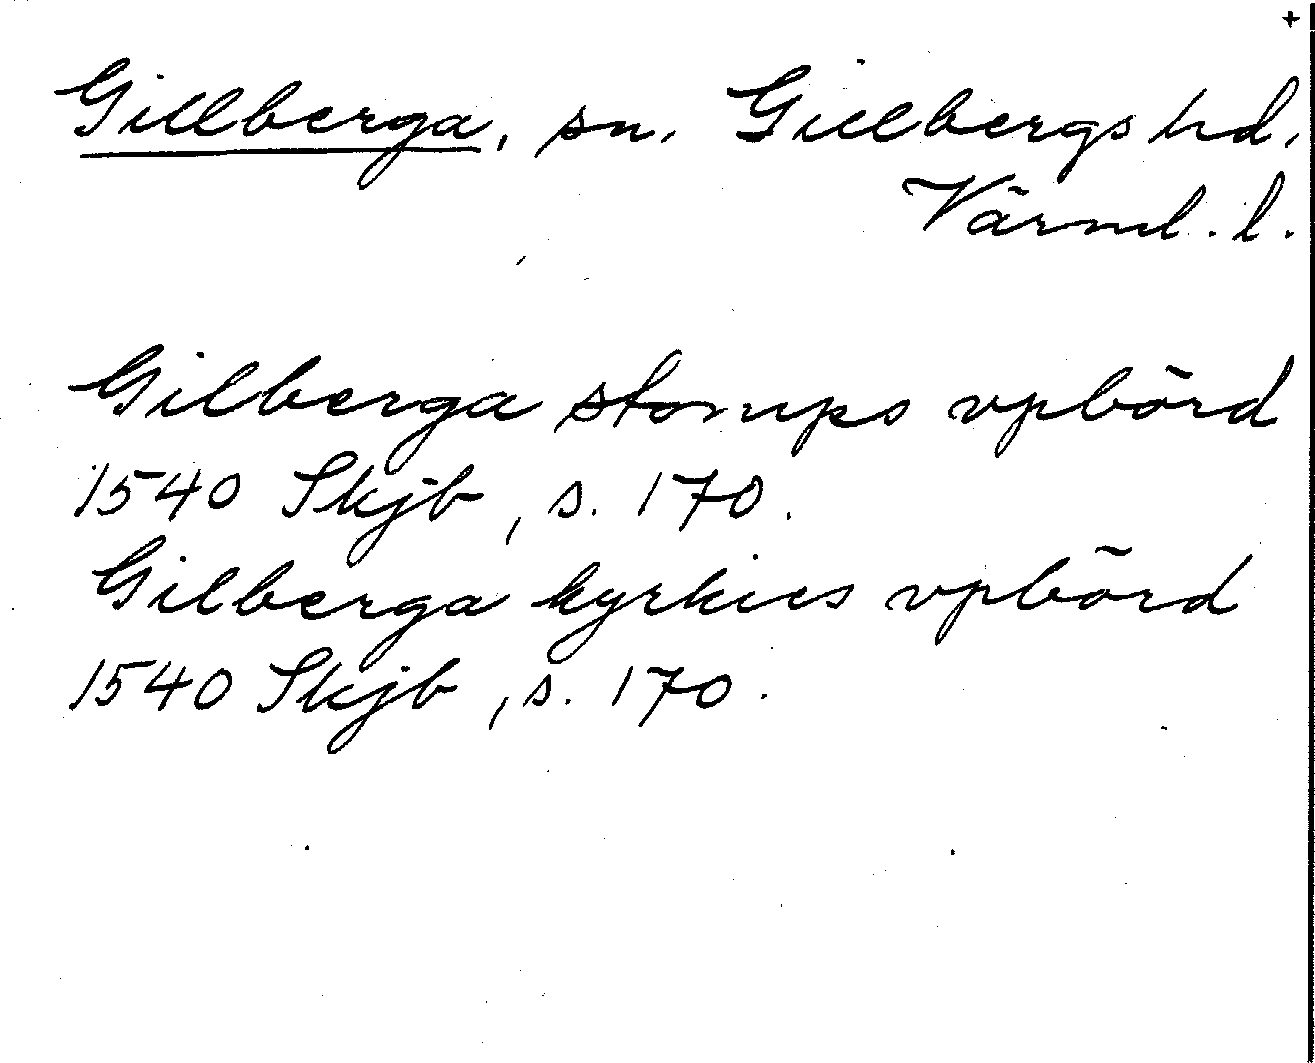 +
Gillberga, sn. Gillbergs hd,
Värml. l.
Gilberga stomps vpbörd
1540 Skjb, s. 170.
Gilberga kyrkies vpbörd
1540 Skjb, s. 170.